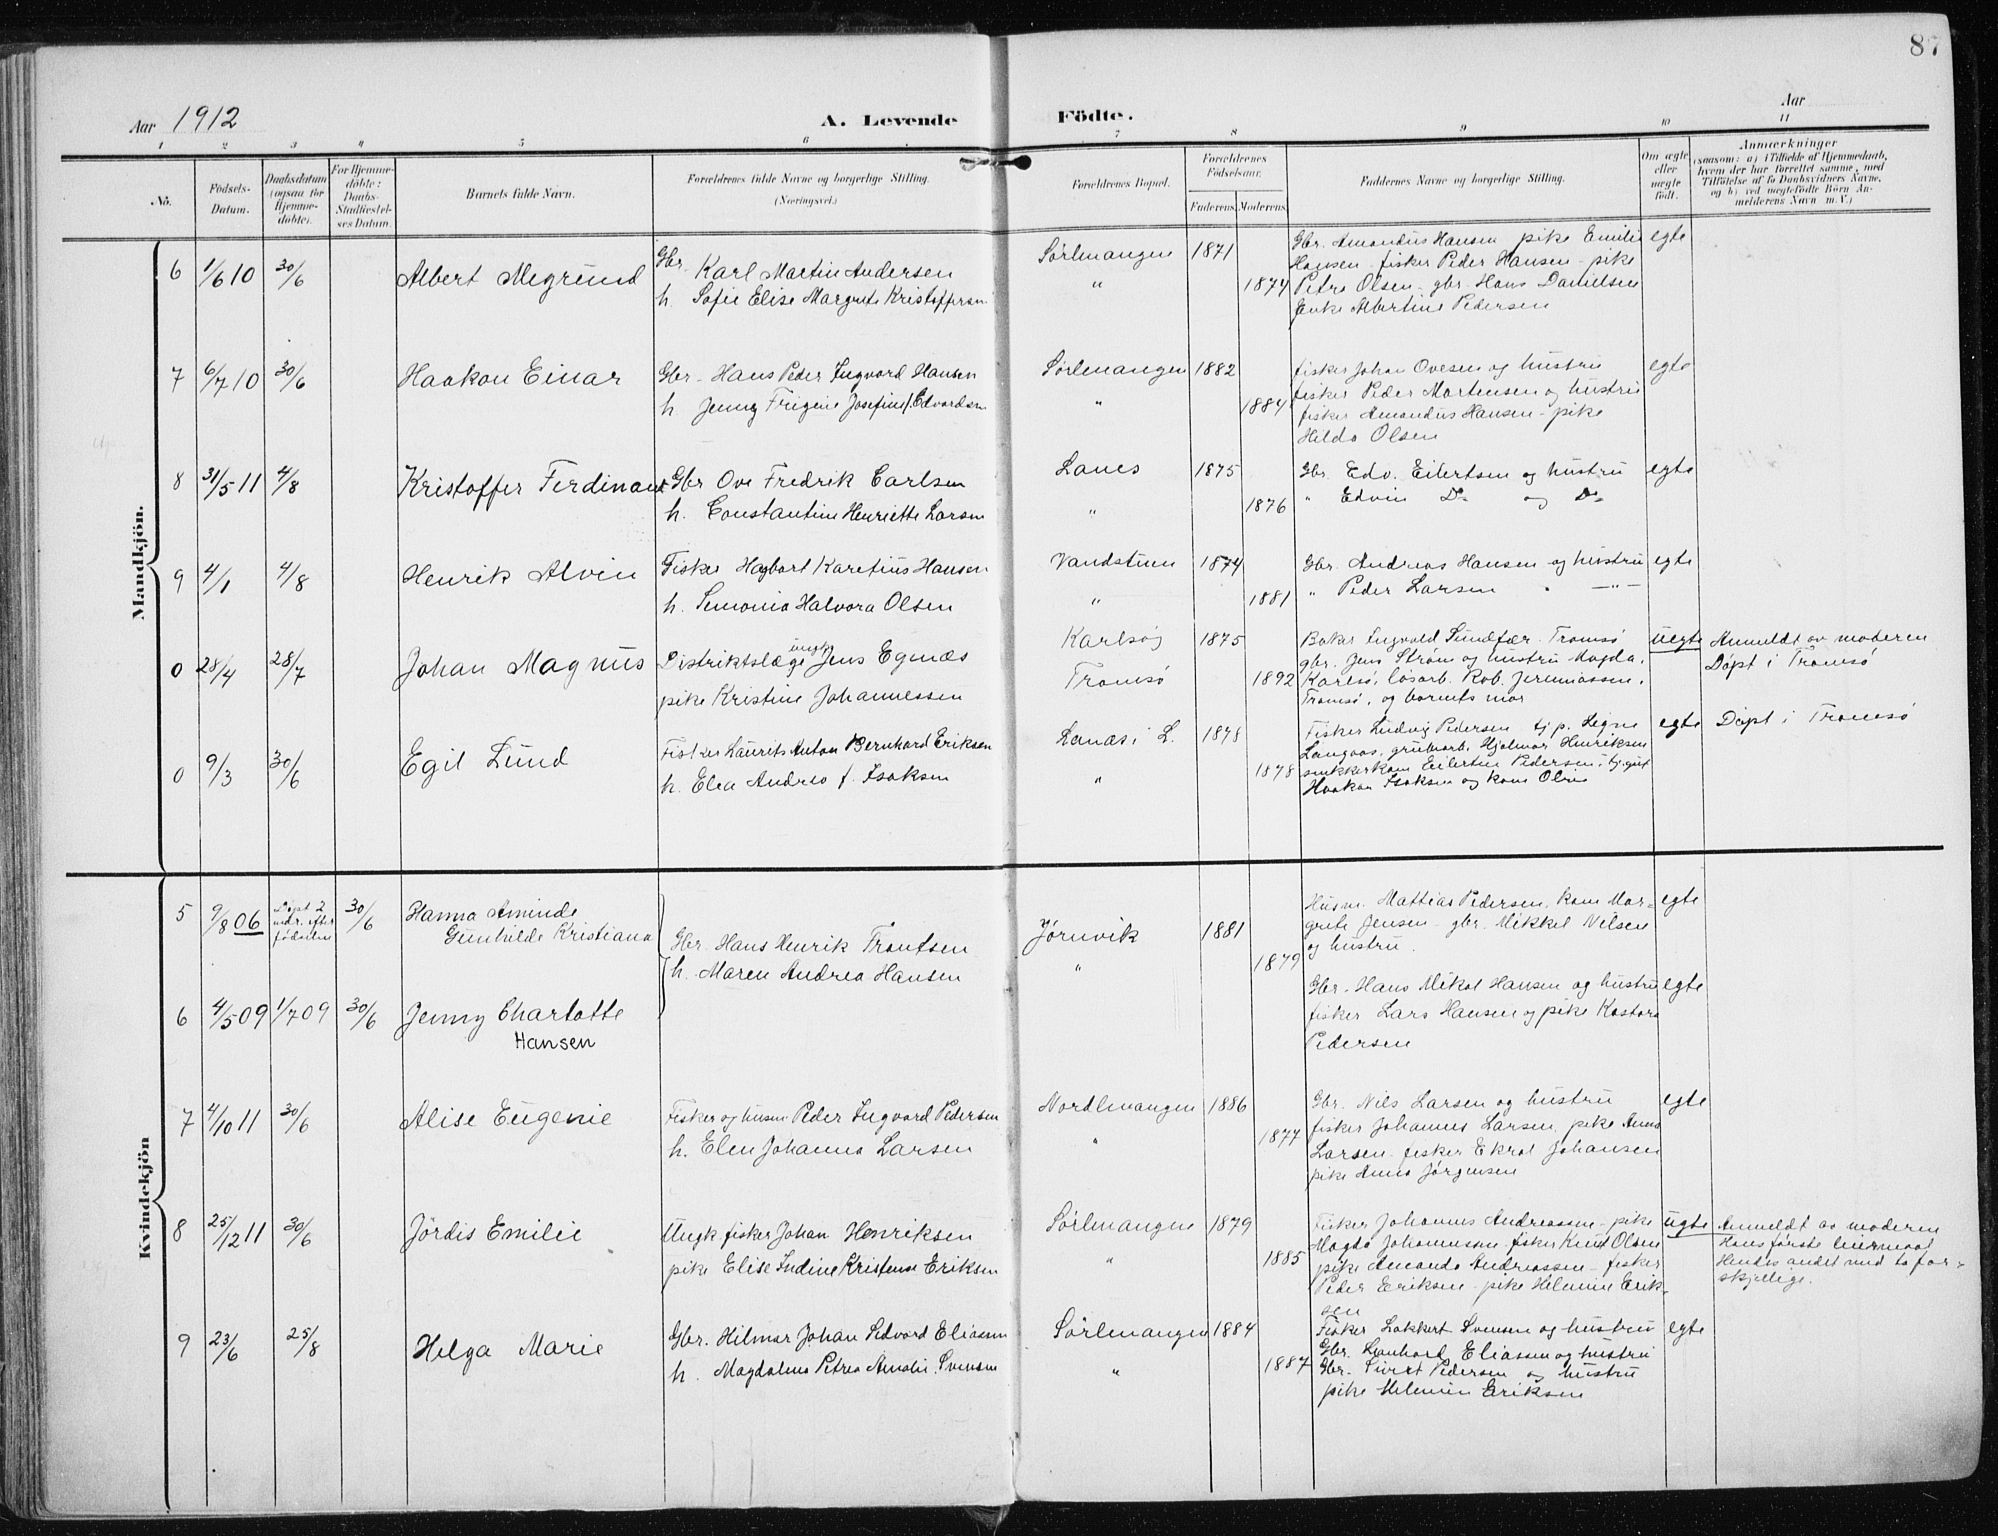 87
Aar 1912
A. Levende Födte.
Aar
1 2 3 4 5 6 7 8 9 10 11
No.
Födsels-Datum.
Daabsdatum (ogsaa for Hjemmedöbte).
For Hjemmedöbte: Daabs-Stadfæstelses Datum.
Barnets fulde Navn.
Forældrenes fulde Navne og borgerlige Stilling. (Næringsvei.)
Forældrenes Bopæl.
Forældrenes Födselsaar.
Faderens. Moderens.
Faddernes Navne og borgerlige Stilling.
Om ægte eller uægte födt.
Anmærkninger (saasom: a) i Tilfælde af Hjemmedaab, hvem der har forrettet samme, med Tilföielse af to Daabsvidners Navne, og b) ved uægtefödte Börn Anmelderens Navn m. V.)
Mandkjön.
6 1/6 10 30/6 Albert Megrund
Gbr. Karl Martin Andersen
h. Sofie Elise Margrete Kristoffersen
Sørlenangen 1871
" 1874
Gbr. Amandus Hansen pike Emilie
Hansen - fisker Peder Hansen - pike
Petre Olsen - gbr. Hans Danielsen
Enke Albertine Pedersen
egte
7 6/7 10 30/6 Haakon Einar
Gbr. Hans Peder Ingvard Hansen
h. Jenny Frigene Josefine f. Edvardsen
Sørlenangen 1882
" 1884
fisker Johan Ovesen og hustru
fisker Peder Mortensen og hustru
fisker Amandus Hansen - pike
Hilda Olsen
egte
8 31/5 11 4/8 Kristoffer Ferdinand
Gbr Ove Fredrik Carlsen
h. Constantine Henriette Larsen
Lanes 1875
" 1876
Gbr. Edv. Eilertsen og hustru
" Edvin Do og Do
egte
9 4/1 4/8 Henrik Alvin
Fisker Hagbart Karelius Hansen
h. Semonia Halvora Olsen
Vandstuen 1874
" 1881
Gbr. Andreas Hansen og hustru
" Peder Larsen " — " —
egte
0 28/4 28/7 Johan Magnus
Distriktslæge ungk Jens Egenæs
pike Kristine Johannessen
Karlsøy 1875
Tromsø 1892
Baker Ingvald Sundfær. Tromsø
gbr. Jens Strøm og hustru Magda,
Karlsø, løsarb. Rob. Jeremiassen,
Tromsø, og barnets mor
uegte
Anmeldt av moderen
Døpt i Tromsø
0 9/3 30/6 Egil Lund
Fisker Laurits Anton Bernhard Eriksen
h. Elea Andrea f. Isaksen
Lanæs i L. 1878
" 1878
Fisker Ludvig Pedersen tj.p. Signe
Langaas, grubearb. Hjalmar Henriksen
snekkerkone Eilertine Pedersen, tj.gut
Haakon Isaksen og kone Olvie
egte
Døpt i Tromsø
Kvindekjön
5 9/8 06 Døpt 2 mdr. efter fødselen 30/6 Hanna Aminde
Gunhilde Kristiana
Gbr. Hans Henrik Trontsen
h. Maren Andrea Hansen
Jørnvik 1881
" 1879
Husm. Mattias Pedersen, kone Mar-
grete Jensen - gbr. Mikkel Nilsen
og hustru.
egte
6 4/5 09 1/7 09 30/6 Jenny Charlotte
Hansen
Gbr. Hans Mikal Hansen og hustru
fisker Lars Hansen og pike Kastara
Pedersen
egte
7 4/10 11 30/6 Alise Eugenie
Fisker og husm Peder Ingvard Pedersen
h. Elen Johanna Larsen
Nordlenangen 1886
" 1877
Gbr. Nils Larsen og hustru
fisker Johannes Larsen, pike Anna
Larsen - fisker Ekrol Johansen
pike Anna Jørgensen
egte
8 25/12 11 30/6 Jördis Emilie
Ungk fisker Johan Henriksen
pike Elise Indine Kristense Eriksen
Sørlenangen 1879
" 1885
Fisker Johannes Andreassen - pike
Magda Johannesen - fisker Knut Olsen
pike Amanda Andreassen - fisker
Peder Eriksen - pike Helmine Erik-
sen
uegte
Anmeldt av moderen
Hans første leiermaal
Hendes andet med to for-
skjellige.
9 23/6 25/8 Helga Marie
Gbr. Hilmar Johan Sedvard Eliassen
h. Magdalena Petrea Amalie Svensen
Sørlenangen 1884
" 1887
Fisker Lakkert Svensen og hustru
Gbr. Leonhard Eliassen og hustru
Gbr. Sivert Pedersen og hustru
pike Helmine Eriksen
egte